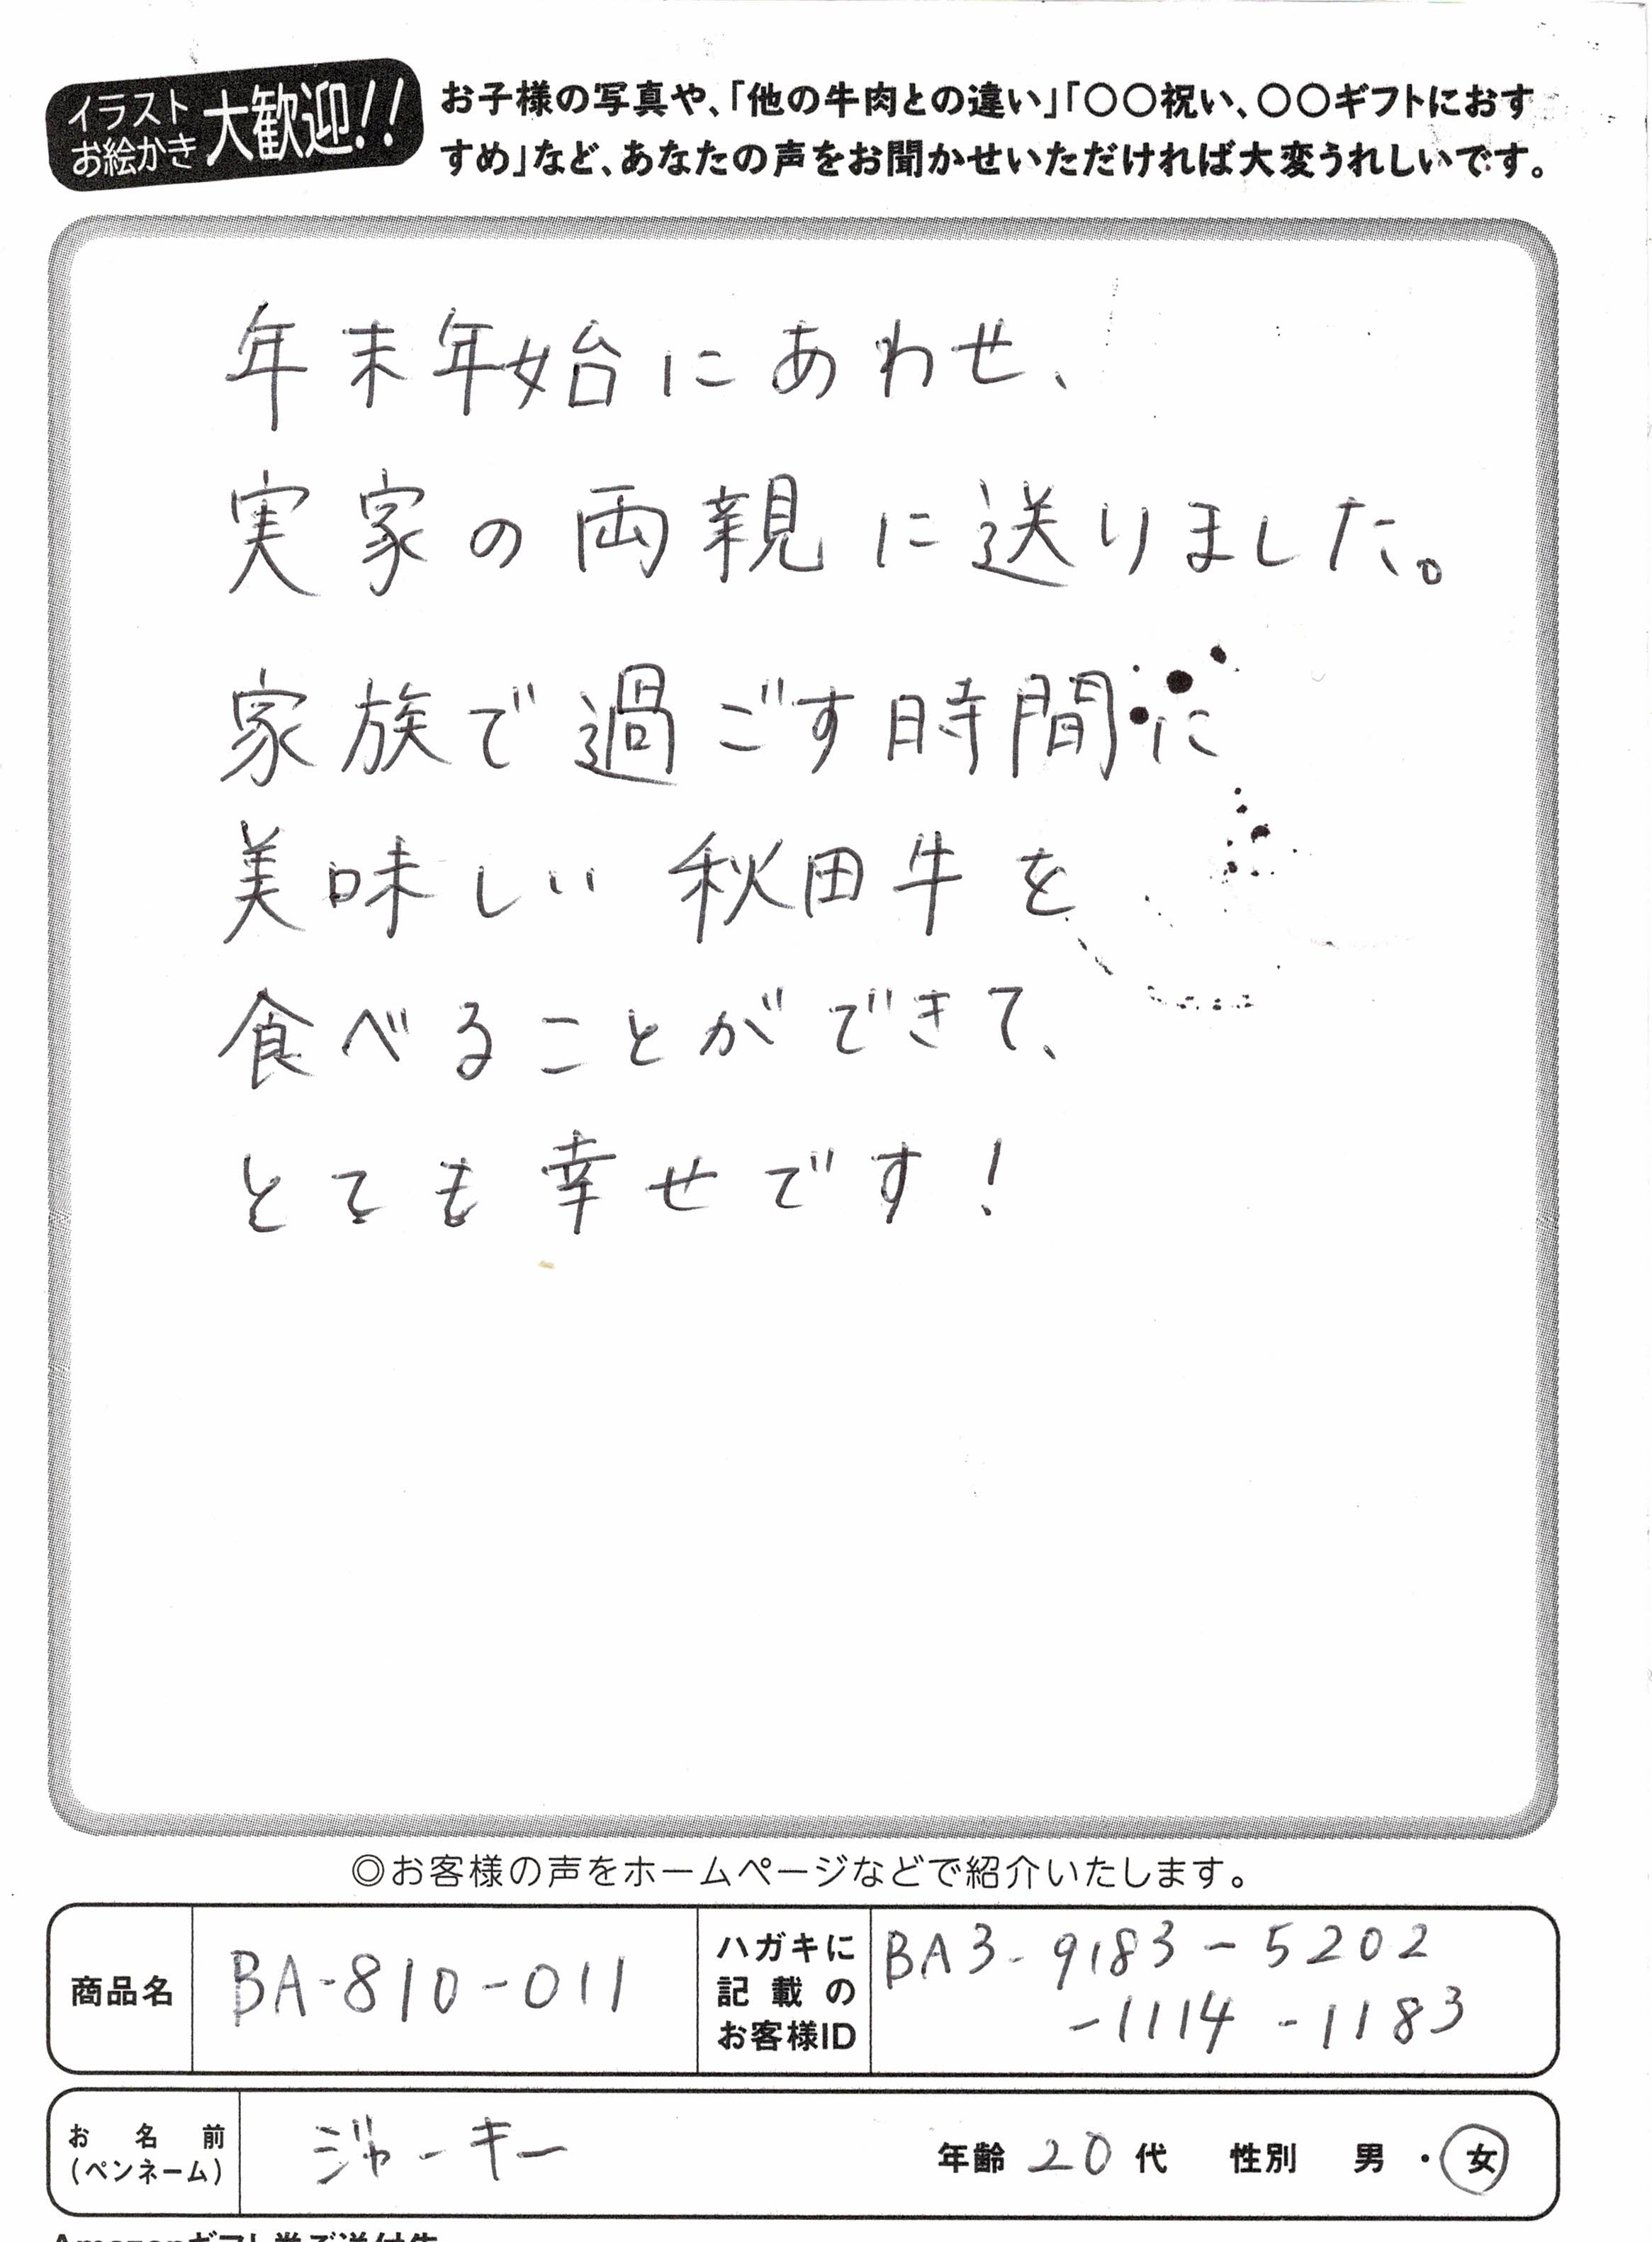 イラスト
お絵かき
大歓迎!!
お子様の写真や、「他の牛肉との違い」「〇〇祝い、〇〇ギフトにおす
すめ」など、あなたの声をお聞かせいただければ大変うれしいです。
年末年始にあわせ、
実家の両親に送りました。
家族で過ごす時間に
美味しい秋田牛を
食べることができて、
とても幸せです!
◎お客様の声をホームページなどで紹介いたします。
商品名
BA-810-011
ハガキに
記載の
お客様ID
BA3-9183-5202
-1114-1183
お名前
(ペンネーム)
ジャーキー
年齢 20代 性別 男・女
Amazonギフト券ご送付先